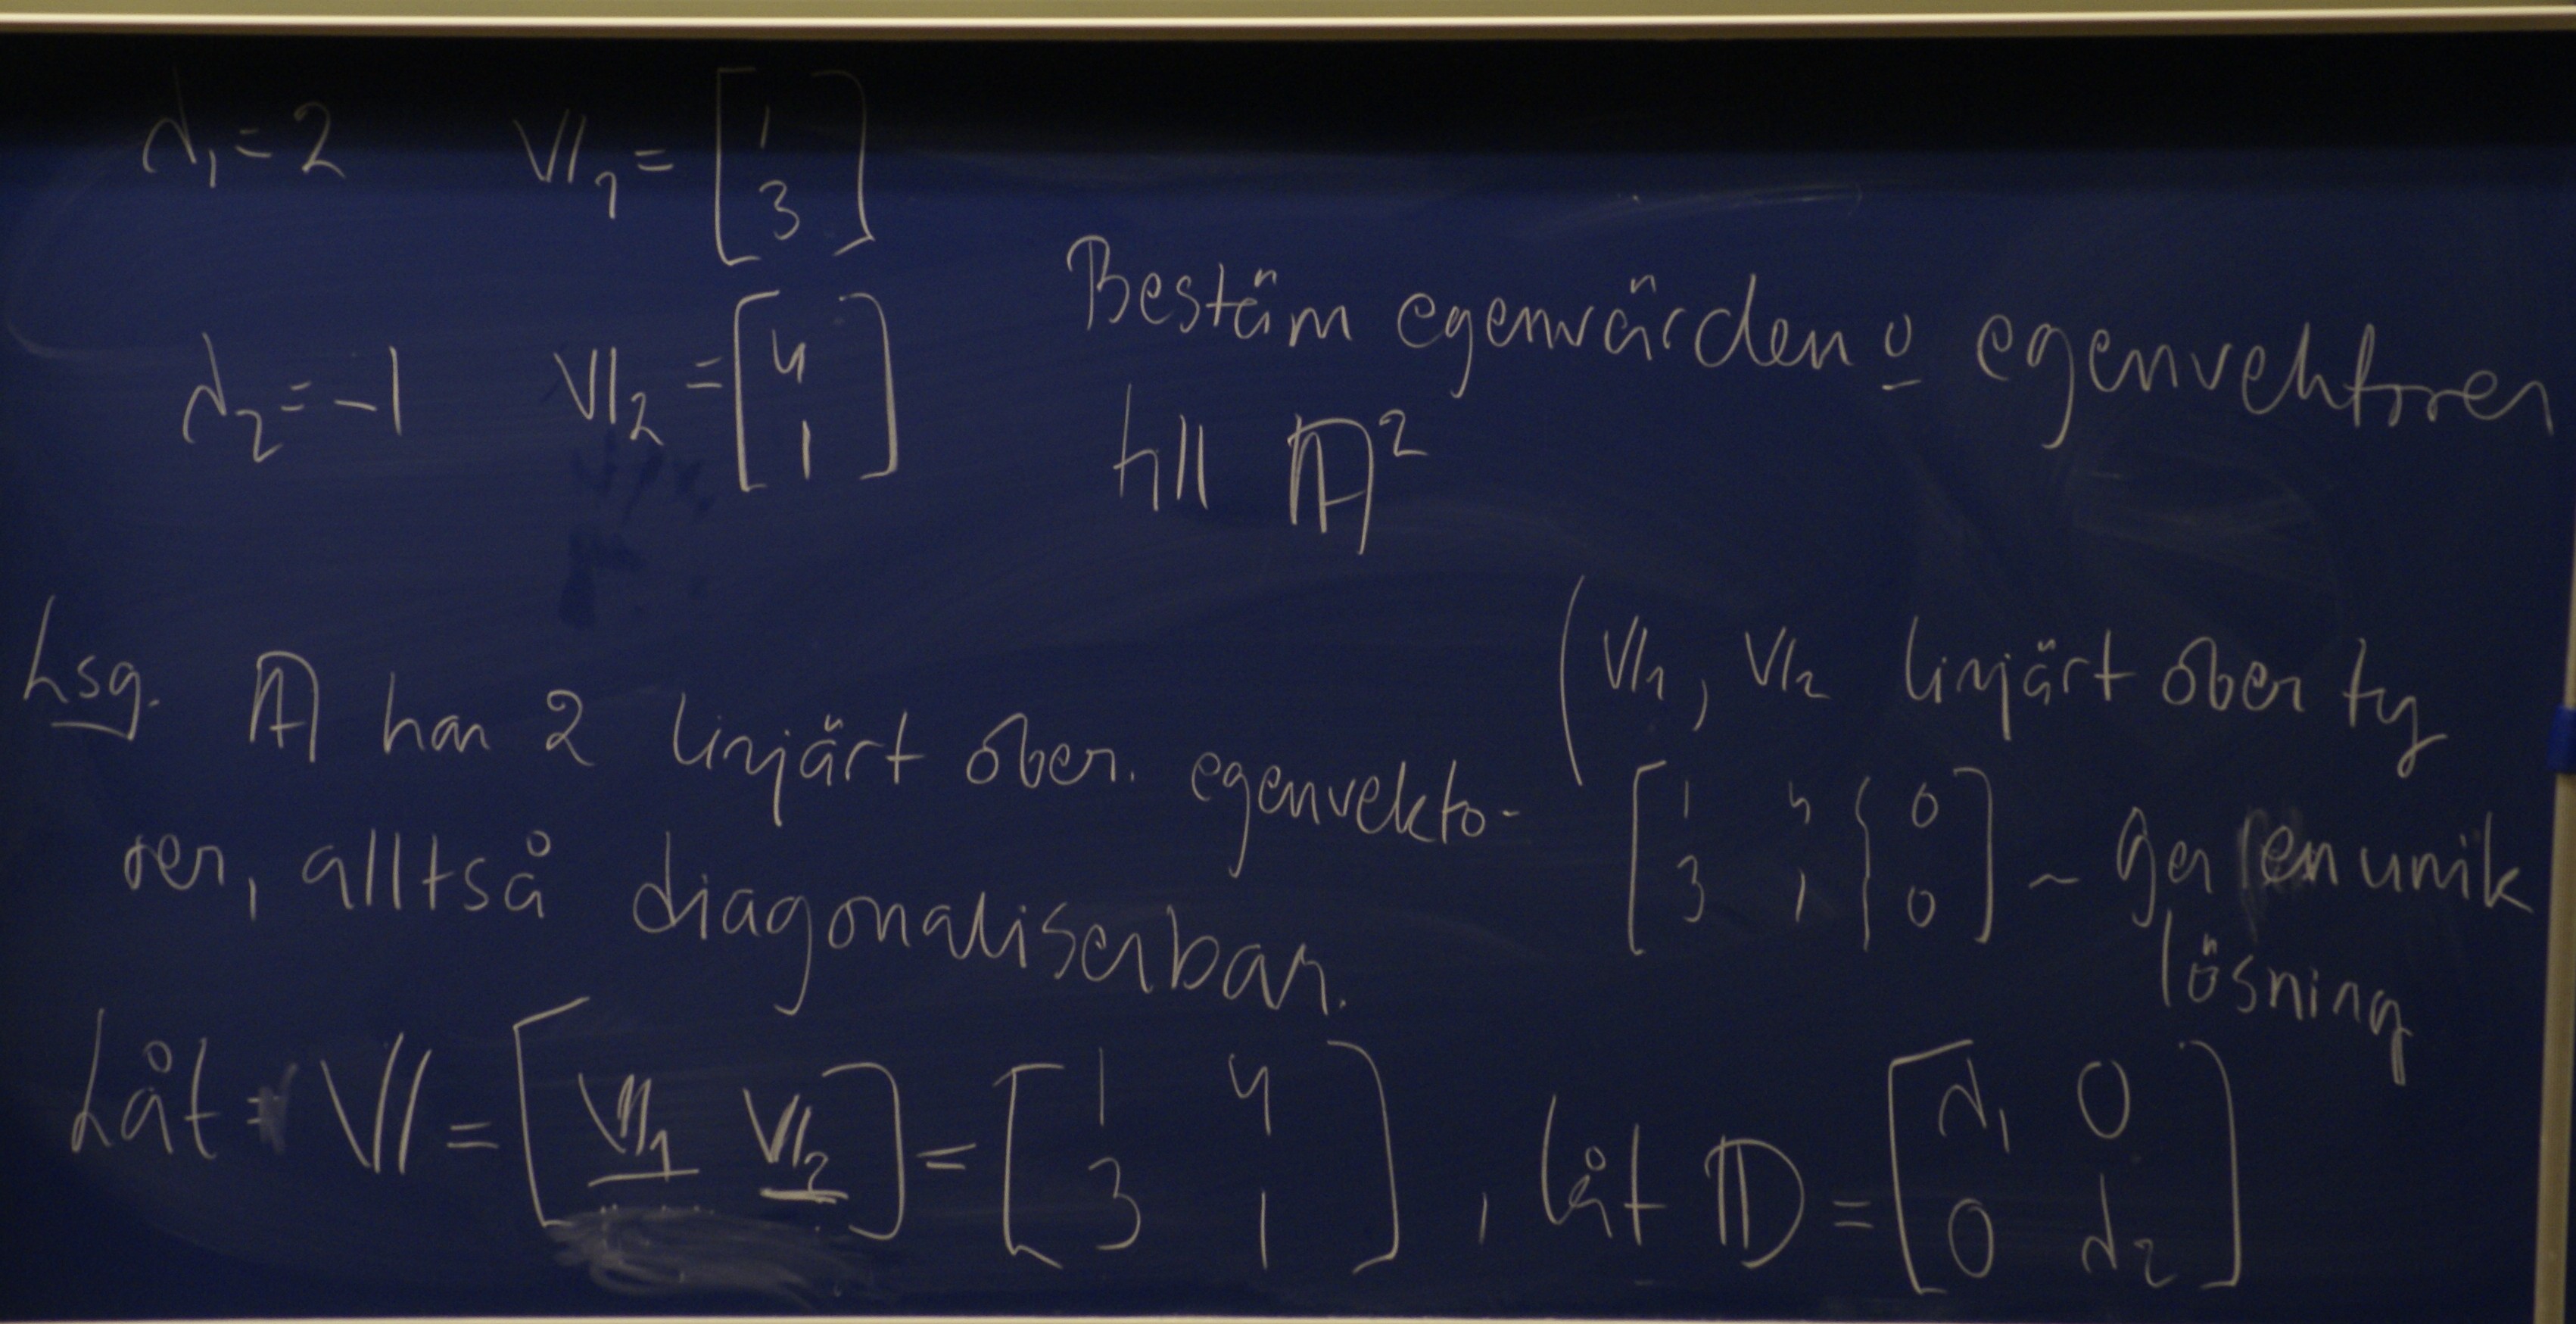 λ₁ = 2   V₁ = [1 3]
λ₂ = -1   V₂ = [4 1]
Bestäm egenvärden o egenvektorer
till A²
Lsg. A har 2 linjärt ober. egenvekto-
rer, alltså diagonaliserbar.
(V₁, V₂ linjärt ober ty
[1 4 | 0
3 1 | 0] ~ ger en unik
lösning
Låt V = [V₁ V₂] = [1 4
3 1], låt D = [λ₁ 0
0 λ₂]